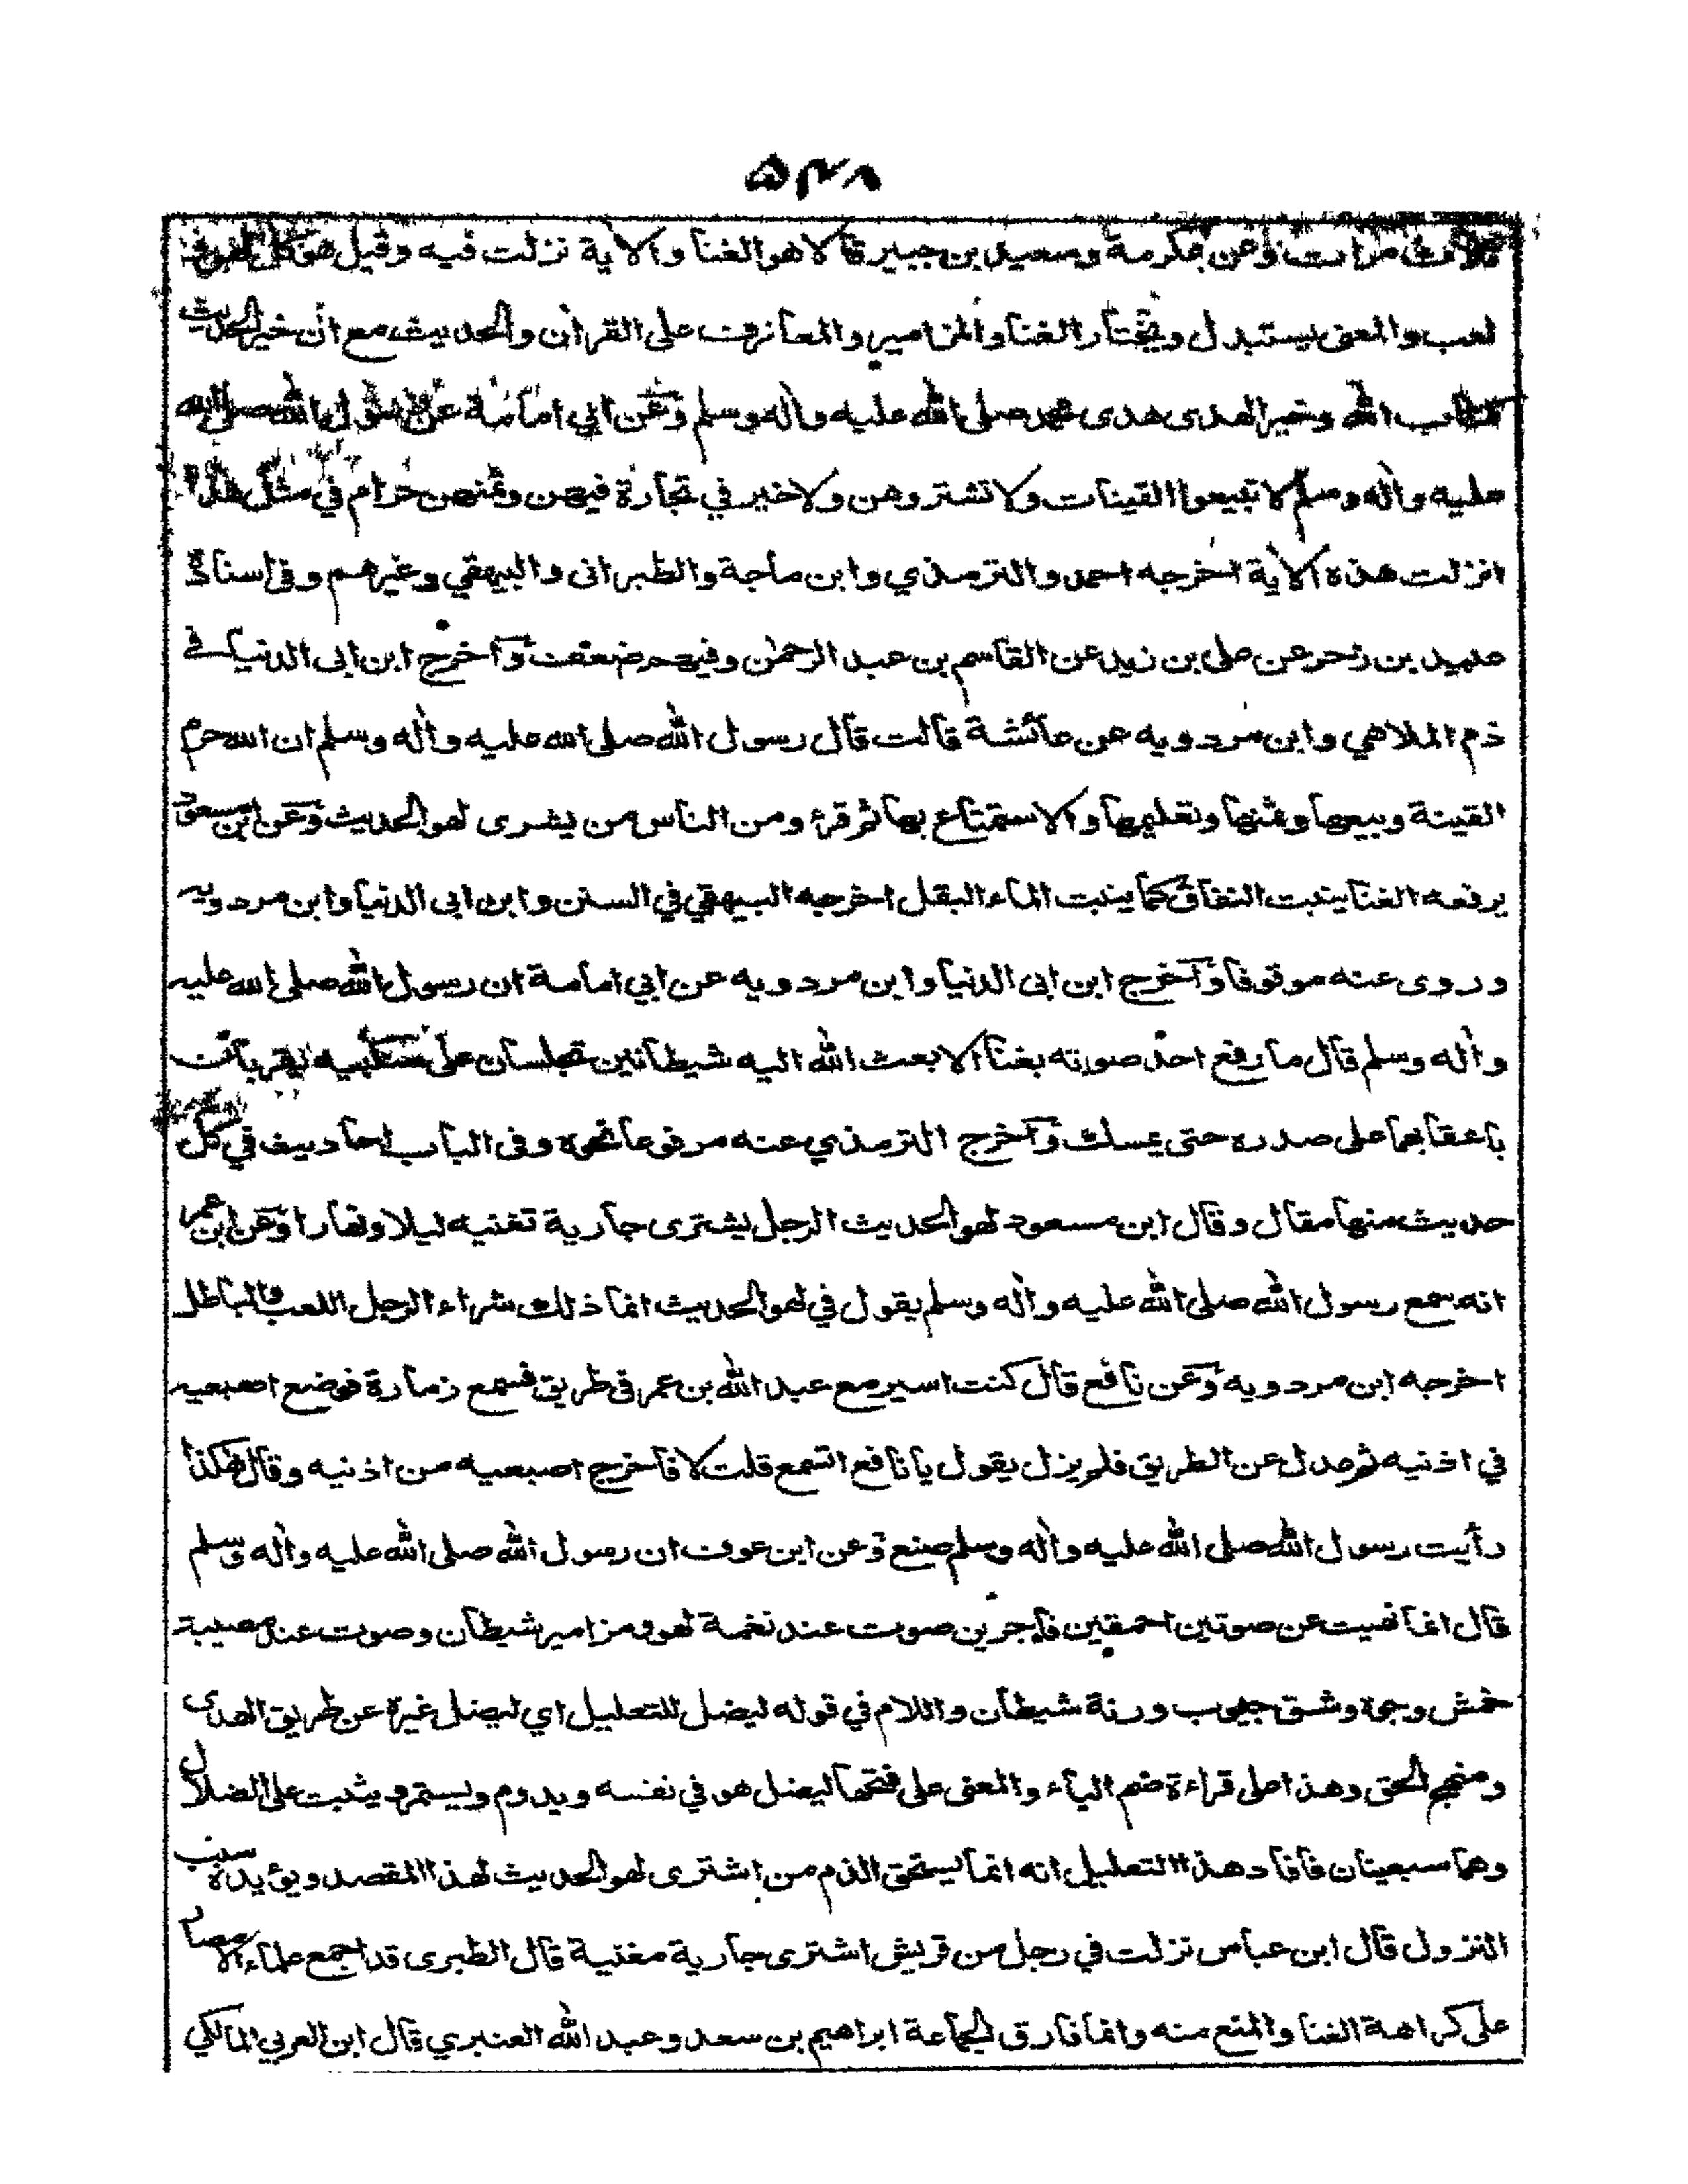 ٥٣٨
ثلاث مرات وعن عكرمة وسعيد بن جبير قالا هو الغنا والاية نزلت فيه وقيل هو كل لهو و
لعب والمعنى يستبدل ويختار الغنا والمزامير والمعازف على القران والحديث مع ان خير الحديث
كتاب الله وخير الهدى هدى محمد صلى الله عليه واله وسلم وعن ابي امامة عن رسول الله صلى الله
عليه واله وسلم لا تبيعوا القينات ولا تشتروهن ولا خير في تجارة فيهن وثمنهن حرام في مثل هذا
انزلت هذه الاية اخرجه احمد والترمذي وابن ماجة والطبرانى والبيهقي وغيرهم وفى اسناده
عبيد بن زحر عن على بن زيد عن القاسم بن عبد الرحمن وفيهم ضعف واخرج ابن ابى الدنيا في
ذم الملاهي وابن مردويه عن عائشة قالت قال رسول الله صلى الله عليه واله وسلم ان الله حرم
القينة وبيعها وثمنها وتعليمها والاستمتاع بها ثم قرء ومن الناس من يشرى لهو الحديث وعن ابن مسعود
يرفعه الغنا ينبت النفاق كما ينبت الماء البقل اخرجه البيهقي في السنن وابن ابى الدنيا وابن مردويه
وروى عنه موقوفا واخرج ابن ابى الدنيا وابن مردويه عن ابي امامة ان رسول الله صلى الله عليه
واله وسلم قال ما رفع احد صوته بغنا الا بعث الله اليه شيطانين تجلسان على منكبيه يضربان
باعقابهما على صدره حتى يمسك واخرج الترمذي عنه مرفوعا نحوه وفى الباب احاديث في كل
حديث منها مقال وقال ابن مسعود لهو الحديث الرجل يشترى جارية تغنيه ليلا ونهارا وعن ابن عمر
انه سمع رسول الله صلى الله عليه واله وسلم يقول في لهو الحديث انما ذلك شراء الرجل اللعب والباطل
اخرجه ابن مردويه وعن نافع قال كنت اسير مع عبد الله بن عمر فى طريق فسمع زمارة فوضع اصبعيه
في اذنيه ثم عدل عن الطريق فلم يزل يقول يا نافع اتسمع قلت لا فاخرج اصبعيه من اذنيه وقال هكذا
رأيت رسول الله صلى الله عليه واله وسلم صنع وعن ابن عوف ان رسول الله صلى الله عليه واله وسلم
قال انما نهيت عن صوتين احمقين فاجرين صوت عند نغمة لهو ومزامير شيطان وصوت عند مصيبة
خمش وجوه وشق جيوب ورنة شيطان واللام في قوله ليضل للتعليل اي ليضل غيره عن طريق الهدى
ومنهج الحق وهذا على قراءة ضم الياء والمعنى على فتحها ليضل هو في نفسه ويدوم ويستمر ويثبت على الضلال
وهما سبعيتان فافاد هذا التعليل انه انما يستحق الذم من اشترى لهو الحديث لهذا المقصد ويؤيده سبب
النزول قال ابن عباس نزلت في رجل من قريش اشترى جارية مغنية قال الطبرى قد اجمع علماء الامصار
على كراهة الغنا والمنع منه وانما فارق الجماعة ابراهيم بن سعد وعبد الله العنبري قال ابن العربي المالكي